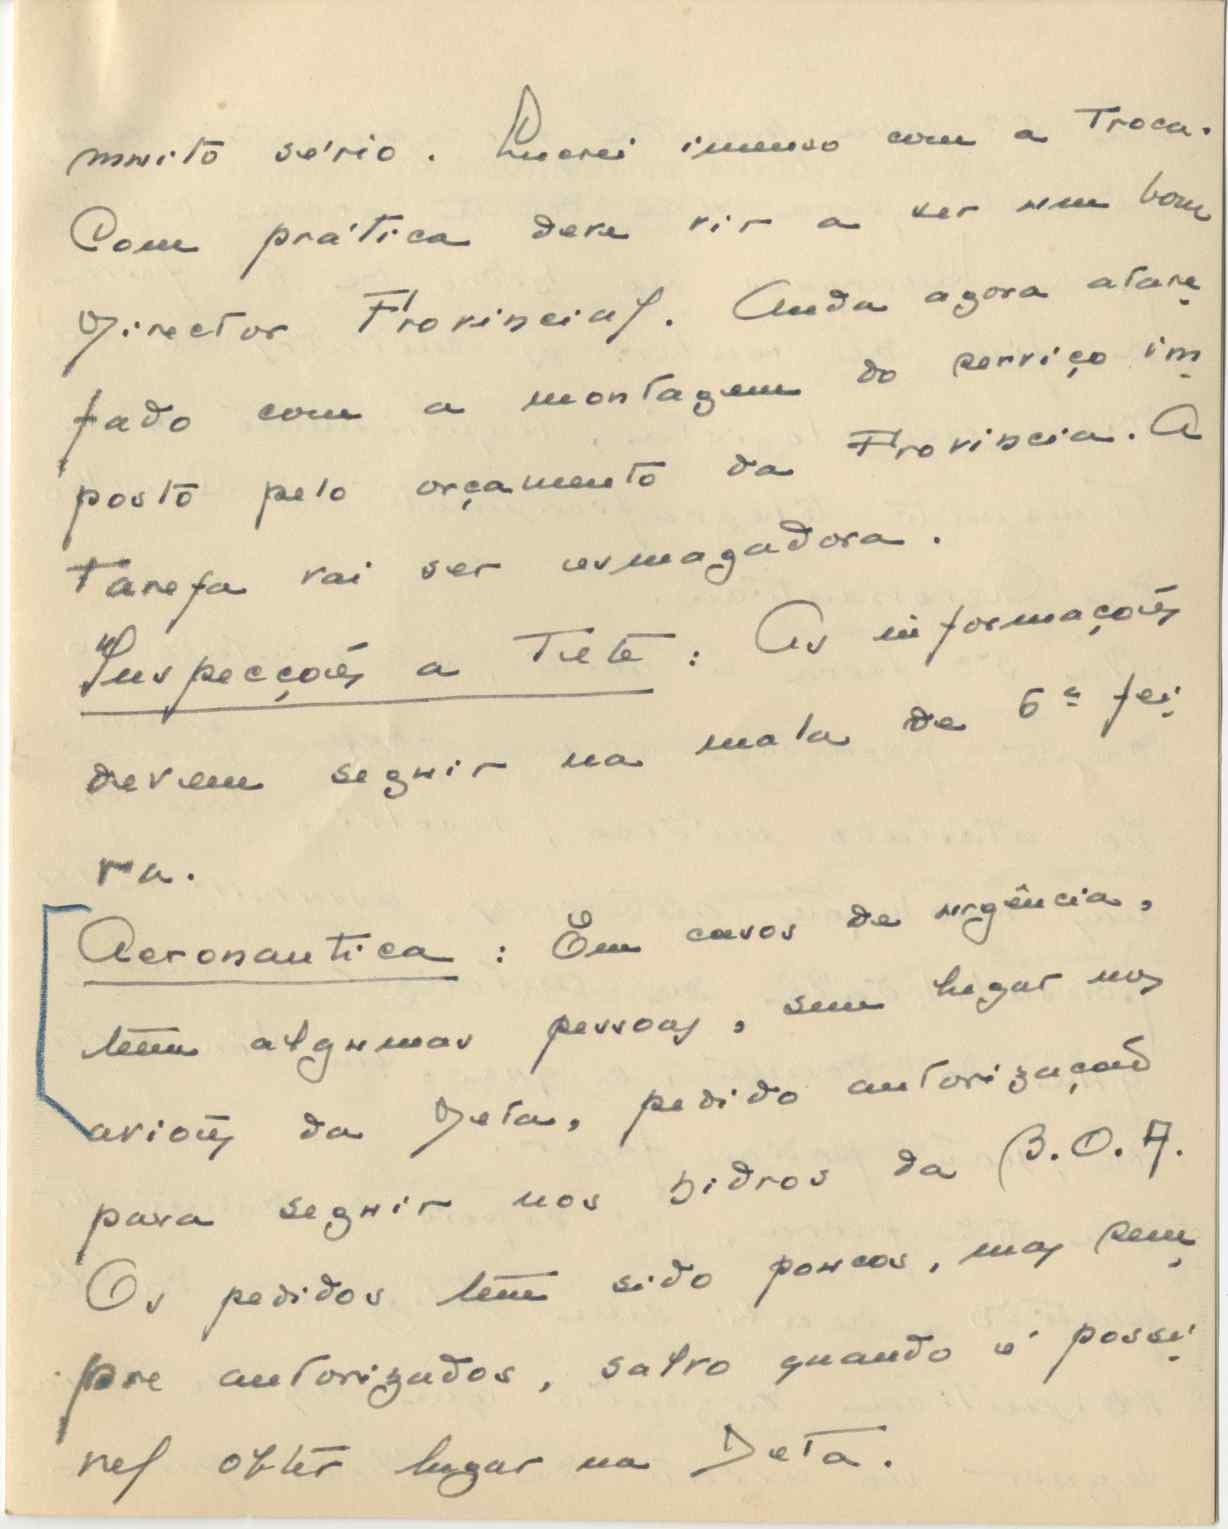 muito sério. Lucrei imenso com a troca.
Com prática deve vir a ser um bom
Director Provincial. Anda agora atare-
fado com a montagem do serviço im-
posto pelo orçamento da Provincia. A
tarefa vai ser esmagadora.
Inspecções a Tete: As informações
devem seguir na mala de 6ª fei-
ra.
Aeronautica: Em casos de urgência,
têm algumas pessoas, sem lugar nos
aviões da Deta, pedido autorização
para seguir nos hidros da B.O.A.
Os pedidos têm sido poucos, mas sem-
pre autorizados, salvo quando é possi-
vel obter lugar na Deta.